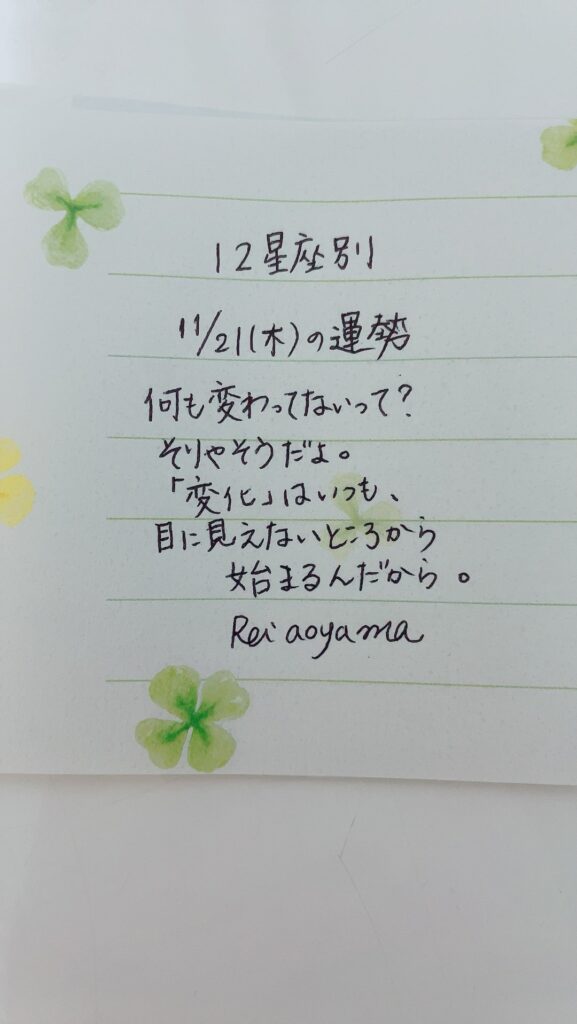 12星座別
11/21(木)の運勢
何も変わってないって?
そりゃそうだよ。
「変化」はいつも、
目に見えないところから
始まるんだから。
Rei aoyama